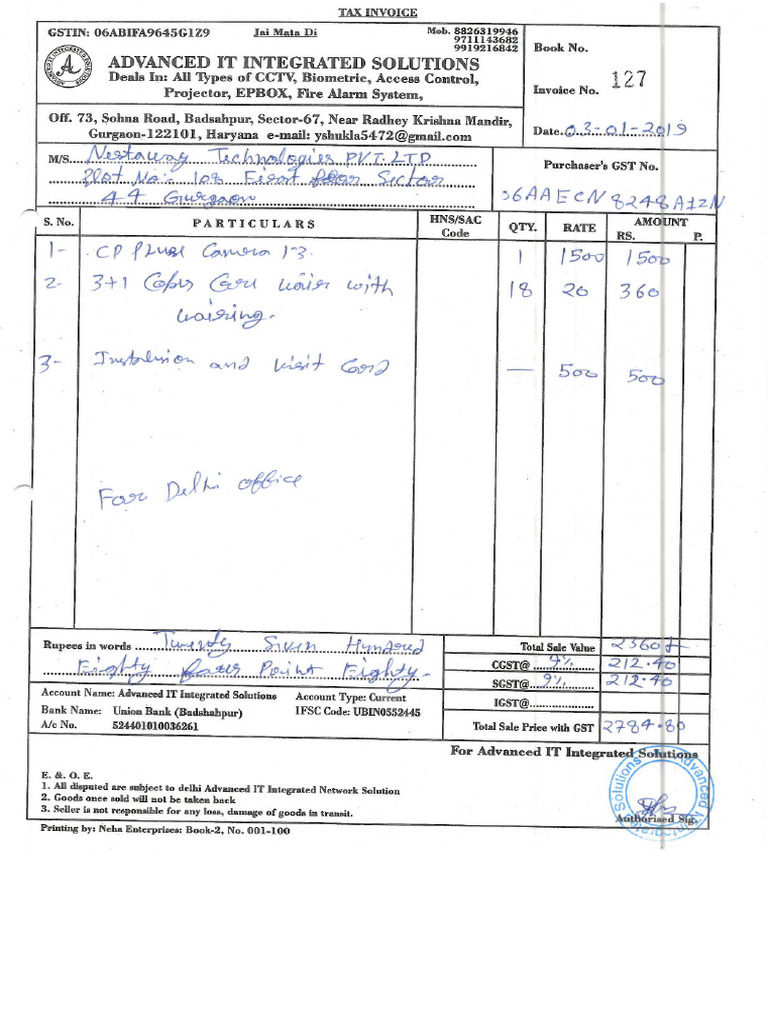 TAX INVOICE
GSTIN: 06ABIFA9645G1Z9 Jai Mata Di Mob. 8826319946
9711143682
9919216842
ADVANCED IT INTEGRATED SOLUTIONS
Deals In: All Types of CCTV, Biometric, Access Control,
Projector, EPBOX, Fire Alarm System,
Book No.
Invoice No. 127
Off. 73, Sohna Road, Badsahpur, Sector-67, Near Radhey Krishna Mandir,
Gurgaon-122101, Haryana e-mail: yshukla5472@gmail.com
Date. 03-01-2019
M/S. Nestaway Technologies PVT. LTD
Plot No:- 108 First floor Sector
44 Gurgaon
Purchaser's GST No.
06AAECN8248A1ZN
S. No. PARTICULARS HNS/SAC Code QTY. RATE AMOUNT RS. P.
1- CP Pluse Camera 1-3 1 1500 1500
2- 3+1 with 18 20 360
wairing.
3- and visit 500 500
For Delhi office
Rupees in words Twenty Siven Hundred
Eighty four Point Eighty
Total Sale Value 2360
CGST@ 9% 212.40
SGST@ 9% 212.40
IGST@
Total Sale Price with GST 2784.80
Account Name: Advanced IT Integrated Solutions Account Type: Current
Bank Name: Union Bank (Badshahpur) IFSC Code: UBIN0552445
A/c No. 524401010036261
For Advanced IT Integrated Solutions
E. & O. E.
1. All disputed are subject to delhi Advanced IT Integrated Network Solution
2. Goods once sold will not be taken back
3. Seller is not responsible for any loss, damage of goods in transit.
Authorised Sig.
Printing by: Neha Enterprises: Book-2, No. 001-100